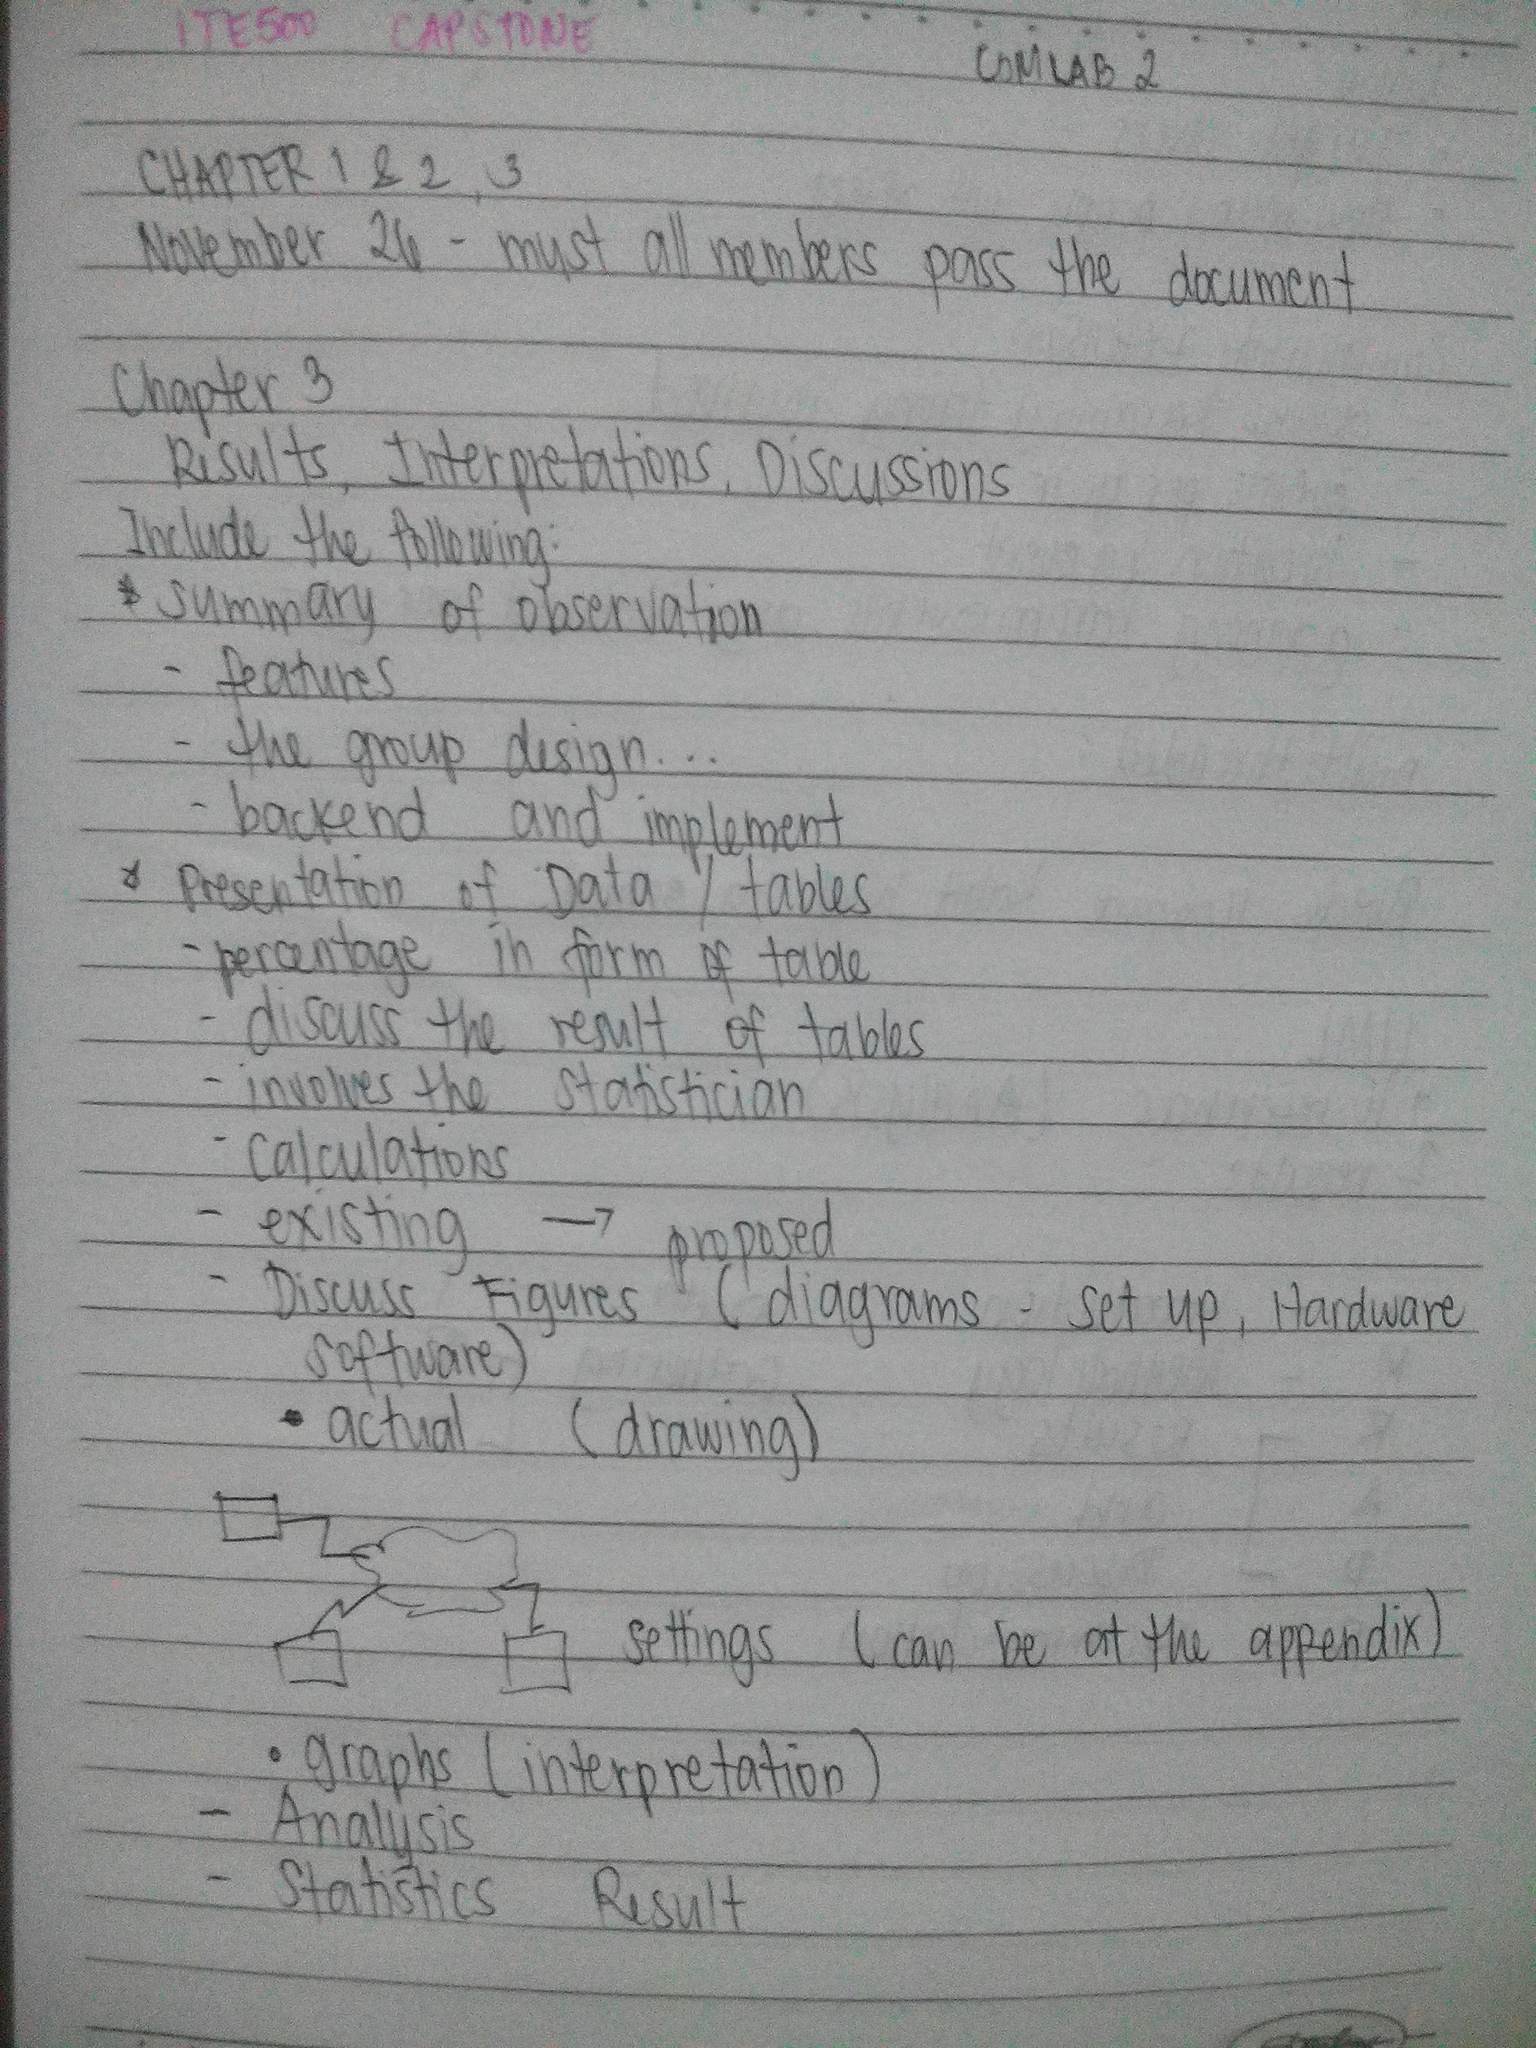 ITE500 CAPSTONE
COMLAB 2
CHAPTER 1 & 2, 3
November 26 - must all members pass the document
Chapter 3
Results, Interpretations, Discussions
Include the following:
* summary of observation
- features
- the group design...
- backend and implement
* Presentation of Data / tables
- percentage in form of table
- discuss the result of tables
- involves the statistician
- calculations
- existing → proposed
- Discuss Figures (diagrams - set up, Hardware
software)
• actual (drawing)
settings (can be at the appendix)
• graphs (interpretation)
- Analysis
- Statistics Result